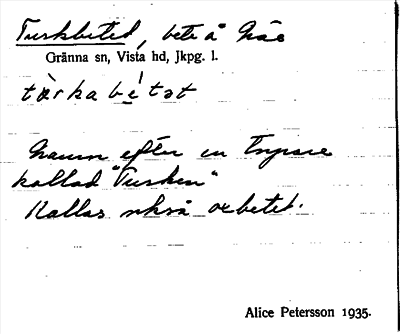 Turkbeted, bete å Näs
Gränna sn, Vista hd, Jkpg. l.
tàrka bétət
Namn efter en Knpare
kallad "Turken"
Kallas också oxbetet.
Alice Petersson 1935.